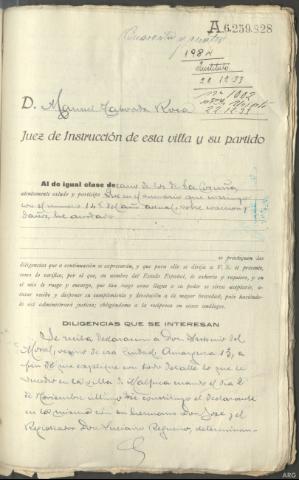 A 6.259.828
Cuarenta y cuatro
1984
Instituto
22 12 33
nº 1002
22 12 33
D. Manuel Taboada Roca
Juez de Instrucción de esta villa y su partido
Al de igual clase decano de los de La Coruña
atentamente saluda y participo: Que en el sumario que instruyo
con el número 145 del año actual, sobre coacción y
daños, he acordado
se practiquen las
diligencias que a continuación se expresarán, y que para ello se dirija a V. S. el presente,
como lo verifico, por el que, en nombre del Estado Español, le exhorto y requiero, y en
el mío le ruego y encargo, que tan luego como llegue a su poder se sirva aceptarlo, a-
cusar recibo y disponer su cumplimiento y devolución a la mayor brevedad, pues haciéndo-
lo así administrará justicia; obligándome a lo recíproco en casos análogos.
DILIGENCIAS QUE SE INTERESAN
Se reciba declaración a Don Antonio del
Moral, vecino de esa ciudad, Amargura 13, a
fin de que explique con todo detalle lo que
sucedió en la villa de Malpica cuando el día 2 de
Noviembre último se constituyó el declarante
en la misma con su hermano Don José y el
Registrador Don Luciano Regueiro, determinan-
ARG